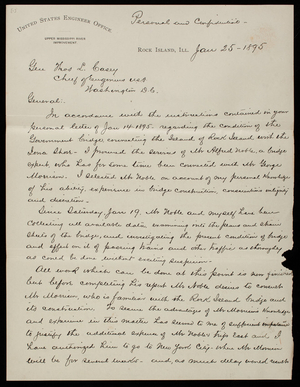 UNITED STATES ENGINEER OFFICE,
UPPER MISSISSIPPI RIVER
IMPROVEMENT.
Personal and Confidential
ROCK ISLAND, ILL. Jan 25-1895
Gen Thos L Casey
Chief of Engineers USA
Washington D.C.
General:
In accordance with the instructions contained in your
personal letter of Jan 14-1895, regarding the condition of the
Government bridge, connecting the Island of Rock Island with the
Iowa Shore. I procured the services of Mr Alfred Noble, a bridge
expert, who has for some time been connected with Mr George
Morison. I selected Mr Noble on account of my personal knowledge
of his ability, experience in bridge construction, conscientiousness, integrity
and discretion.
Since Saturday Jan 19, Mr Noble and myself have been
collecting all available data, examining into the plans and strain
sheets of the bridge, and investigating the present condition of bridge
and effect on it of passing trains and other traffic as thoroughly
as could be done without exciting suspicion.
All work which can be done at this point is now finished
but before completing his report Mr Noble desires to consult
Mr Morison, who is familiar with the Rock Island bridge and
its construction. To secure the advantage of Mr Morison's knowledge
and experience in this matter has seemed to me of sufficient importance
to justify the additional expense of Mr Noble's trip East and I
have authorized him to go to New York City where Mr Morison
will be for several weeks - and, as much delay would result